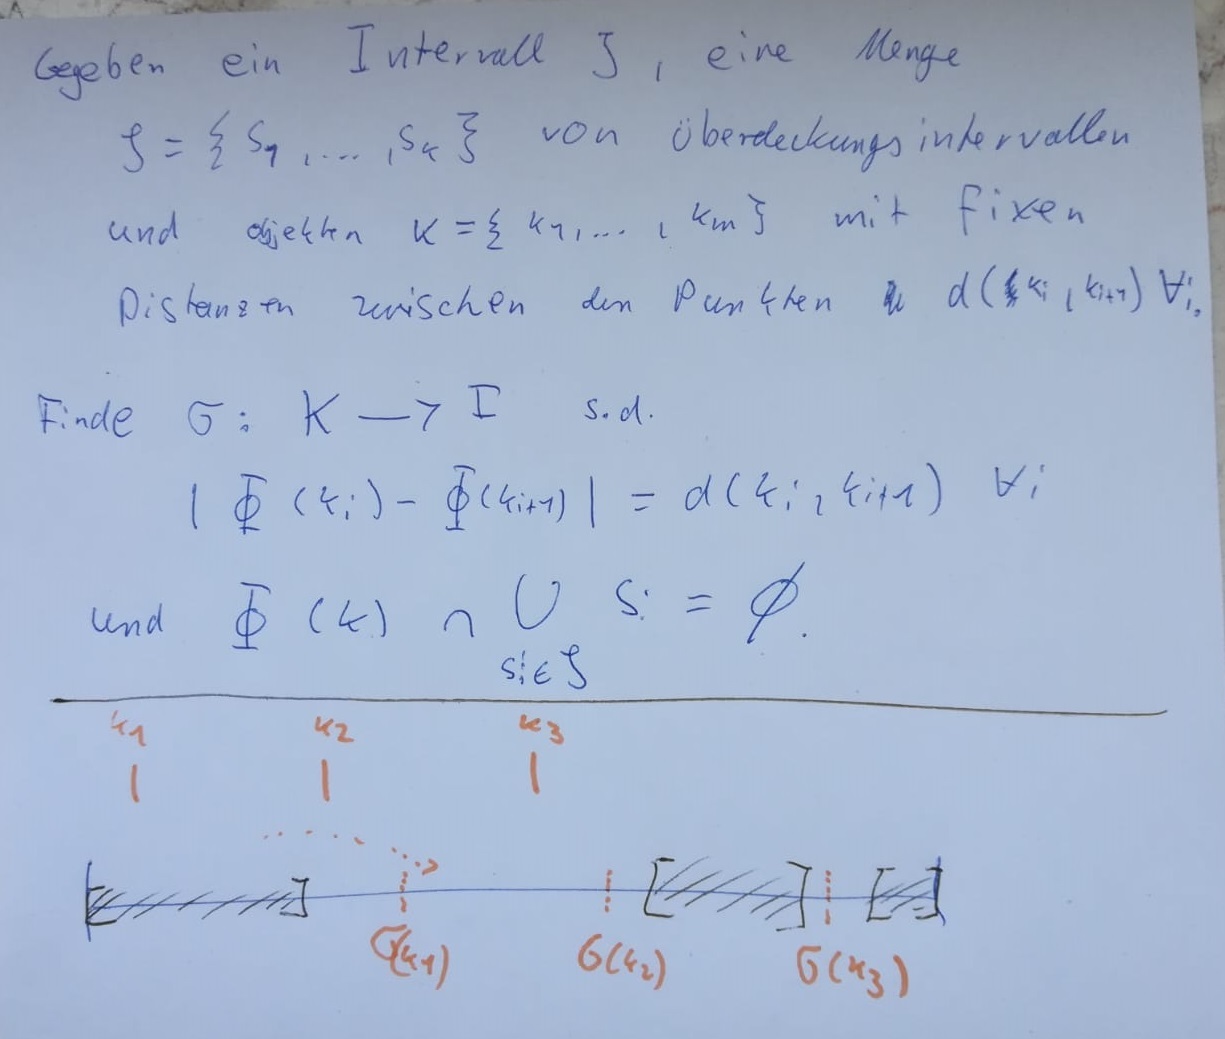 Gegeben ein Intervall I, eine Menge
S = { s1, ..., sk } von Überdeckungsintervallen
und objekten K = { k1, ..., km } mit fixen
Distanzen zwischen den Punkten d(ki, ki+1) ∀i.
Finde σ: K → I s.d.
| Φ(ki) - Φ(ki+1) | = d(ki, ki+1) ∀i
und Φ(k) ∩ ⋃ si = ∅.
si∈S
k1 k2 k3
σ(k1) σ(k2) σ(k3)